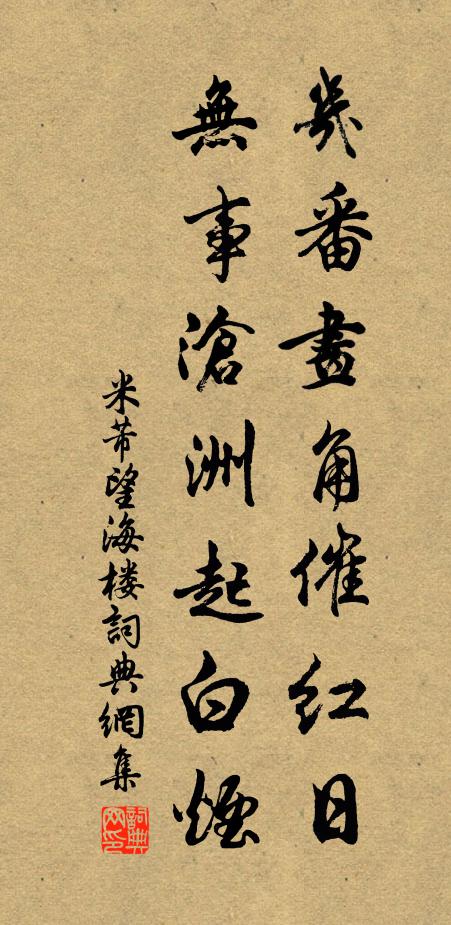 幾番畫角催紅日
無事滄洲起白煙
米芾望海楼詞典網集
詞典网印